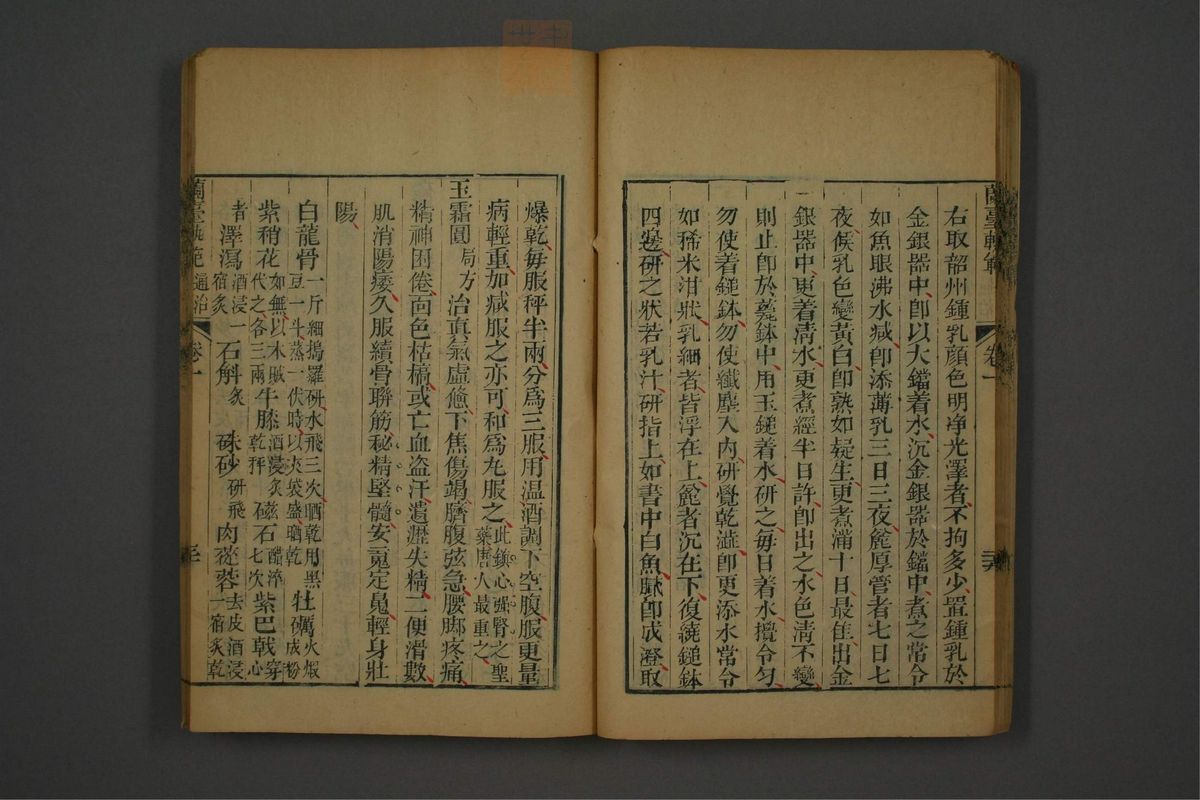 右取韶州鍾乳顏色明净光澤者不拘多少置鍾乳於
金銀器中卽以大鐺着水沉金銀器於鐺中煮之常令
如魚眼沸水減卽添薄乳三日三夜麄厚管者七日七
夜候乳色變黃白卽熟如疑生更煮滿十日最佳出金
銀器中更着清水更煮經半日許卽出之水色清不變
則止卽於甆鉢中用玉鎚着水研之每日着水攪令勻
勿使着鎚鉢勿使纖塵入內研覺乾澁卽更添水常令
如稀米泔狀乳細者皆浮在上麄者沉在下復繞鎚鉢
四邊研之狀若乳汁研指上如書中白魚膩卽成澄取
卷一
爆乾每服秤半兩分爲三服用温酒調下空腹服更量
病輕重加減服之亦可和爲丸服之此鎮心強腎之聖藥唐人最重之
玉霜圓局方治真氣虛憊下焦傷竭臍腹弦急腰脚疼痛
精神困倦面色枯槁或亡血盗汗遺瀝失精二便滑數
肌消陽痿久服續骨聯筋秘精堅髓安䰟定魄輕身壯
陽
白龍骨一斤細搗羅研水飛三次晒乾用黑豆一斗蒸一伏時以夾袋盛晒乾牡蠣火煆成粉
紫稍花如無以木賊代之各三兩牛膝酒浸炙乾秤磁石醋淬七次紫巴戟穿心
者澤瀉酒浸一宿炙石斛炙硃砂研飛肉蓯蓉去皮酒浸一宿炙乾
蘭臺軌範
通治
卷一